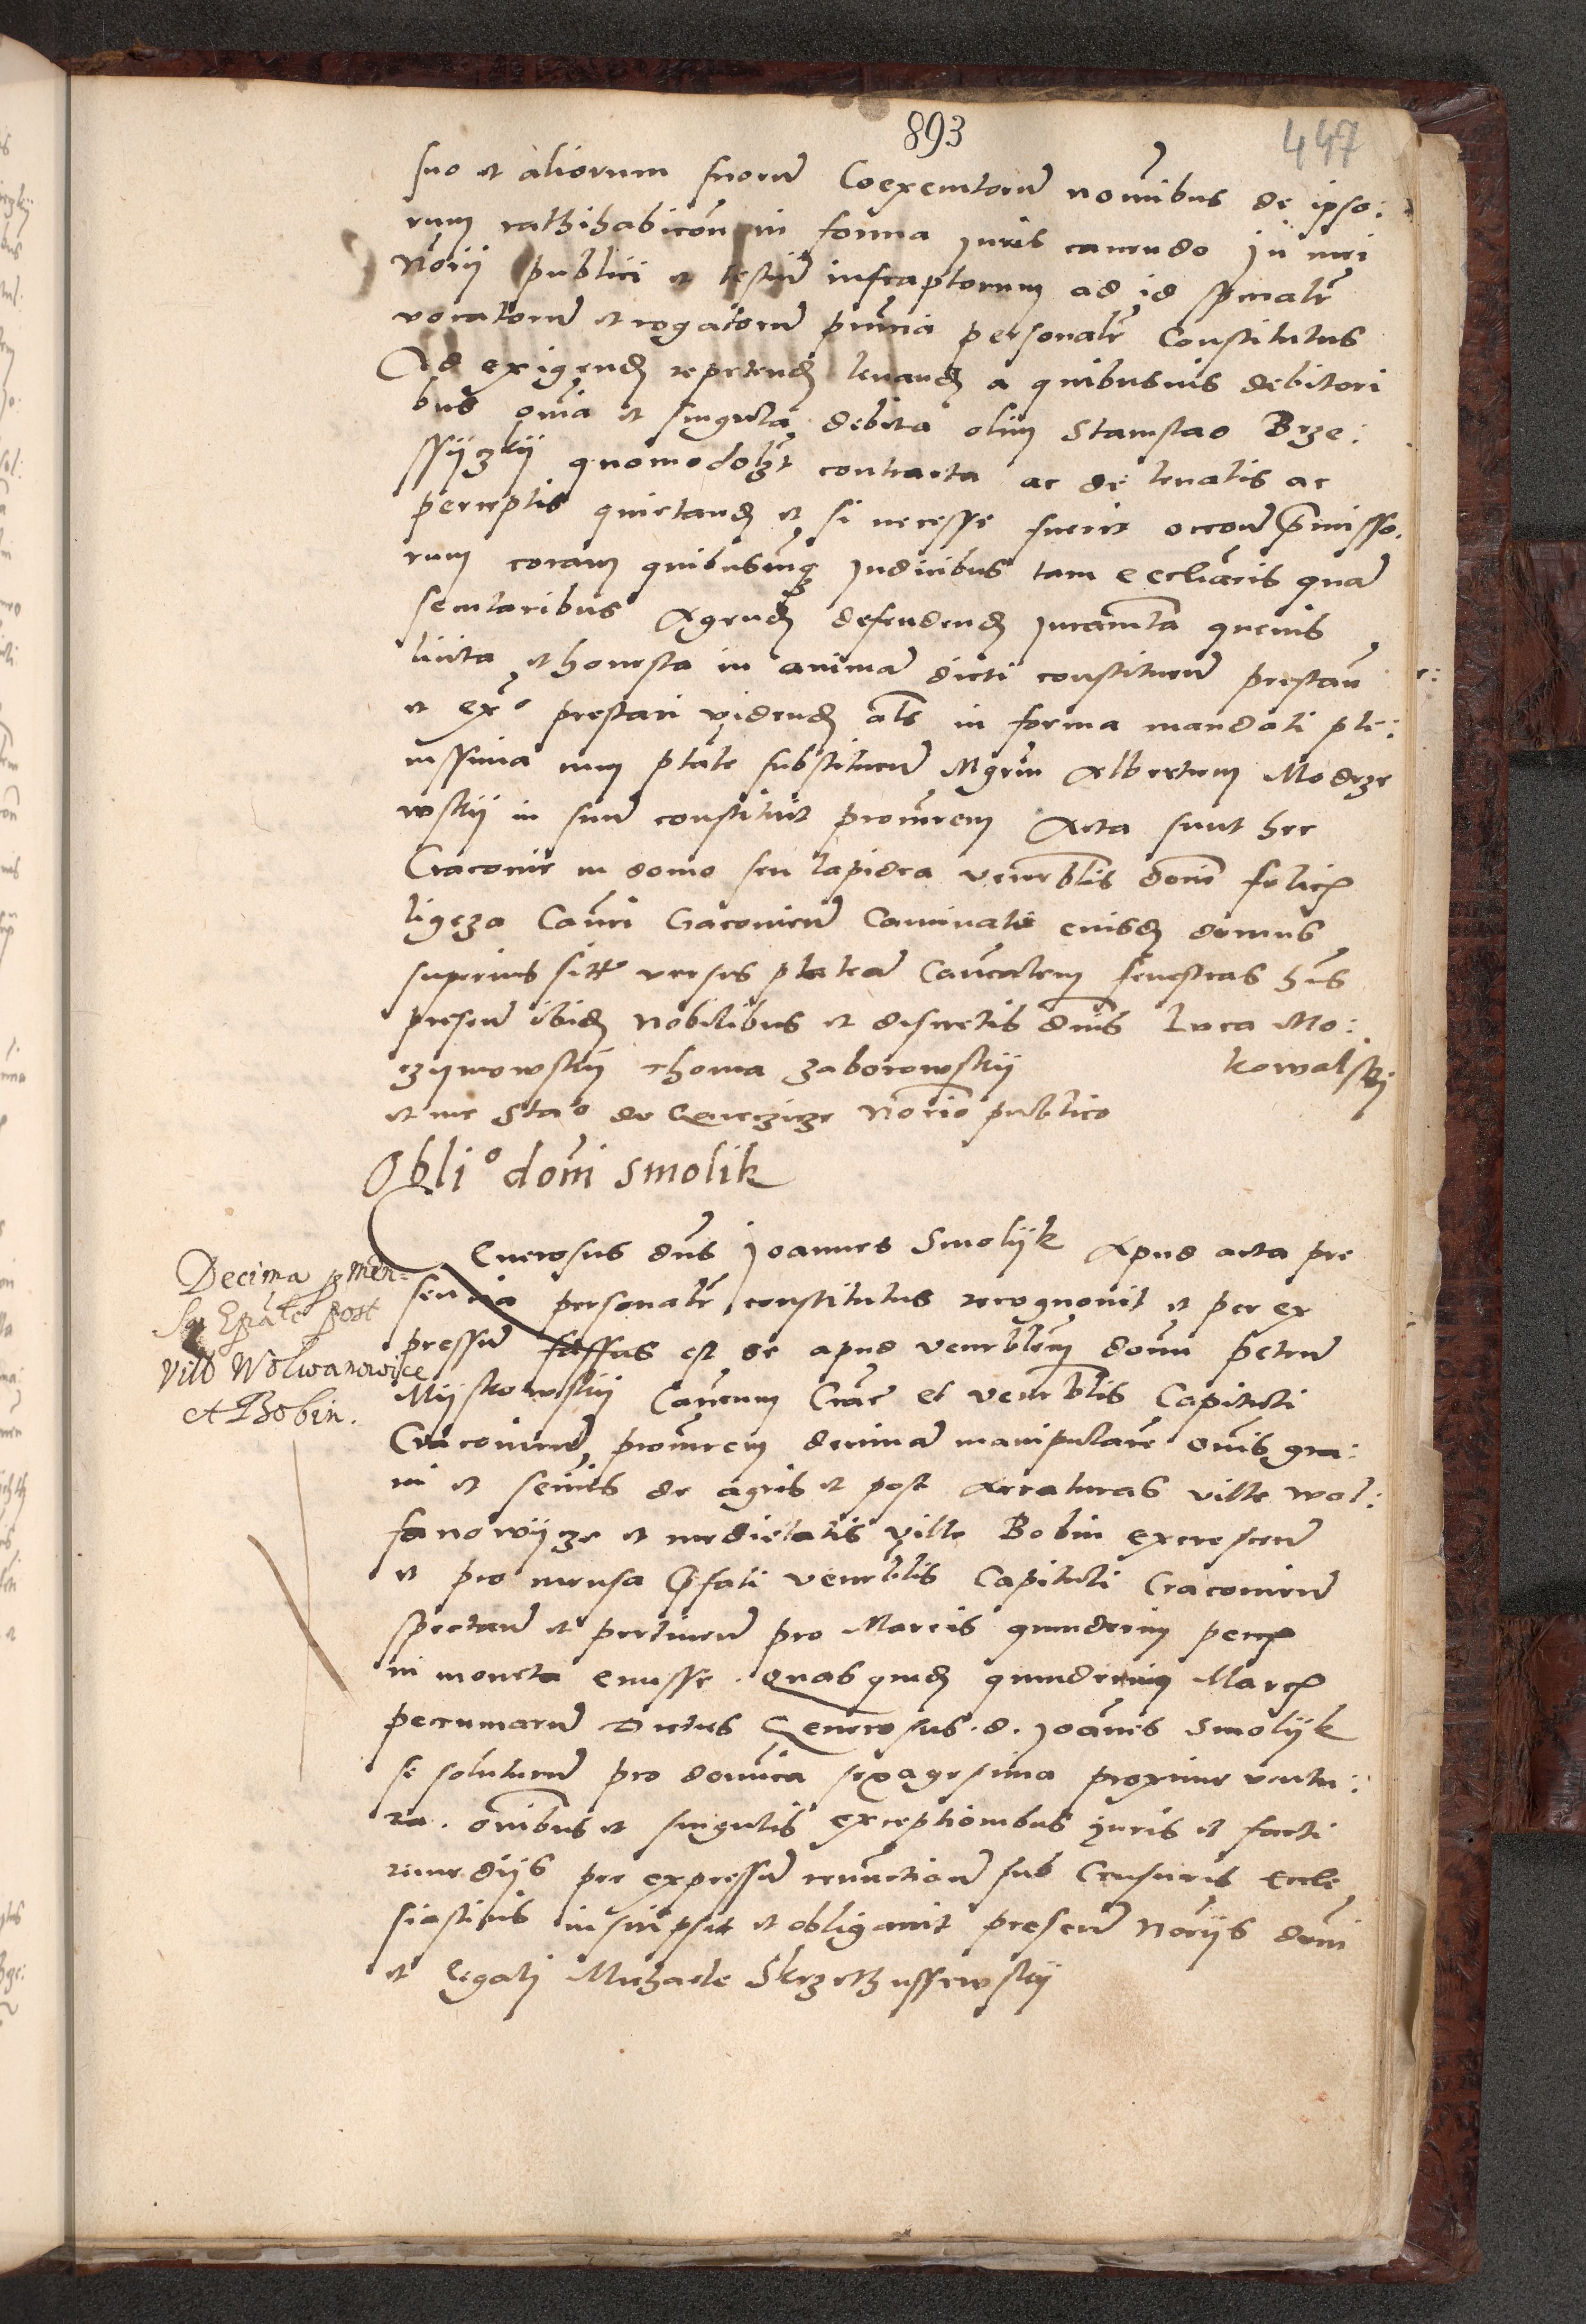 893
447
suo et aliorum suorum Coexecutorum nominibus de ipso:
rum rathihabicon in forma Juris cavendo In mei
Norij publici et testium infrascriptorum ad id specialr
vocatorum et rogatorum pntia personalr Constitutus
Ad exigend repetend levand a quibusvis debitori
bus omnia et singula debita olim Stanislao Brze:
ssijzkij quomodolbt contracta ac de levatis ac
perceptis quietand et si necesse fuerit occone premisso
rum coram quibuscunque Judicibus tam ecclicis quam
secularibus Agend defendend Juramta quevis
licita et honesta in animam dicti constituen prestan
et exº prestari vidend als in forma mandati ple:
nissima cum ptate substituen Mgrm Albertum Modrze
wskij in suum constituit procurem Acta sunt hec
Cracovie in domo seu lapidea venrblis domini felicis
ligeza Canci Cracovien Caminata eiusd domus
superius sitt versus plateam Canocalem fenestras hns
presen ibid Nobilibus et discretis dnis Luca Mo:
zymowskij Thoma zaborowskij kowalski
et me Staº de Genezize Norio publico
Obliº domi Smolik
Decima p men=
sa Epale post
vill Wolwanowice
et Bobin.
Generosus dns Joannes Smolijk Apud acta pre
sencia personalr constitutus recognovit et per ex
pressum fassus est se apud venrblem domi petrum
Mijskowskij Cancum Crac et venrblis Capituli
Cracovien procurem decimam manipularem omnis gra:
ni et seminis de agris et post Arraturas ville wol:
fanowijze et medietatis ville Bobin excrescen
et pro mensa prefati venrblis Capituli Cracovien
spectan et pertinen pro Marcis quindecim pecu
in moneta emisse. Quas quid quindecim Marcis
pecuniarum Dictus Generosus. d. Joannes Smolijk
se soluturum pro domca sexagesima proxime ventu:
ra. omnibus et singulis exceptionibus Juris et facti
remedijs per expressum renunctian sub Censuris Eccle
siasticis inscripsit et obligavit presen Norijs domi
et legali Michaele Skrzethussewskij